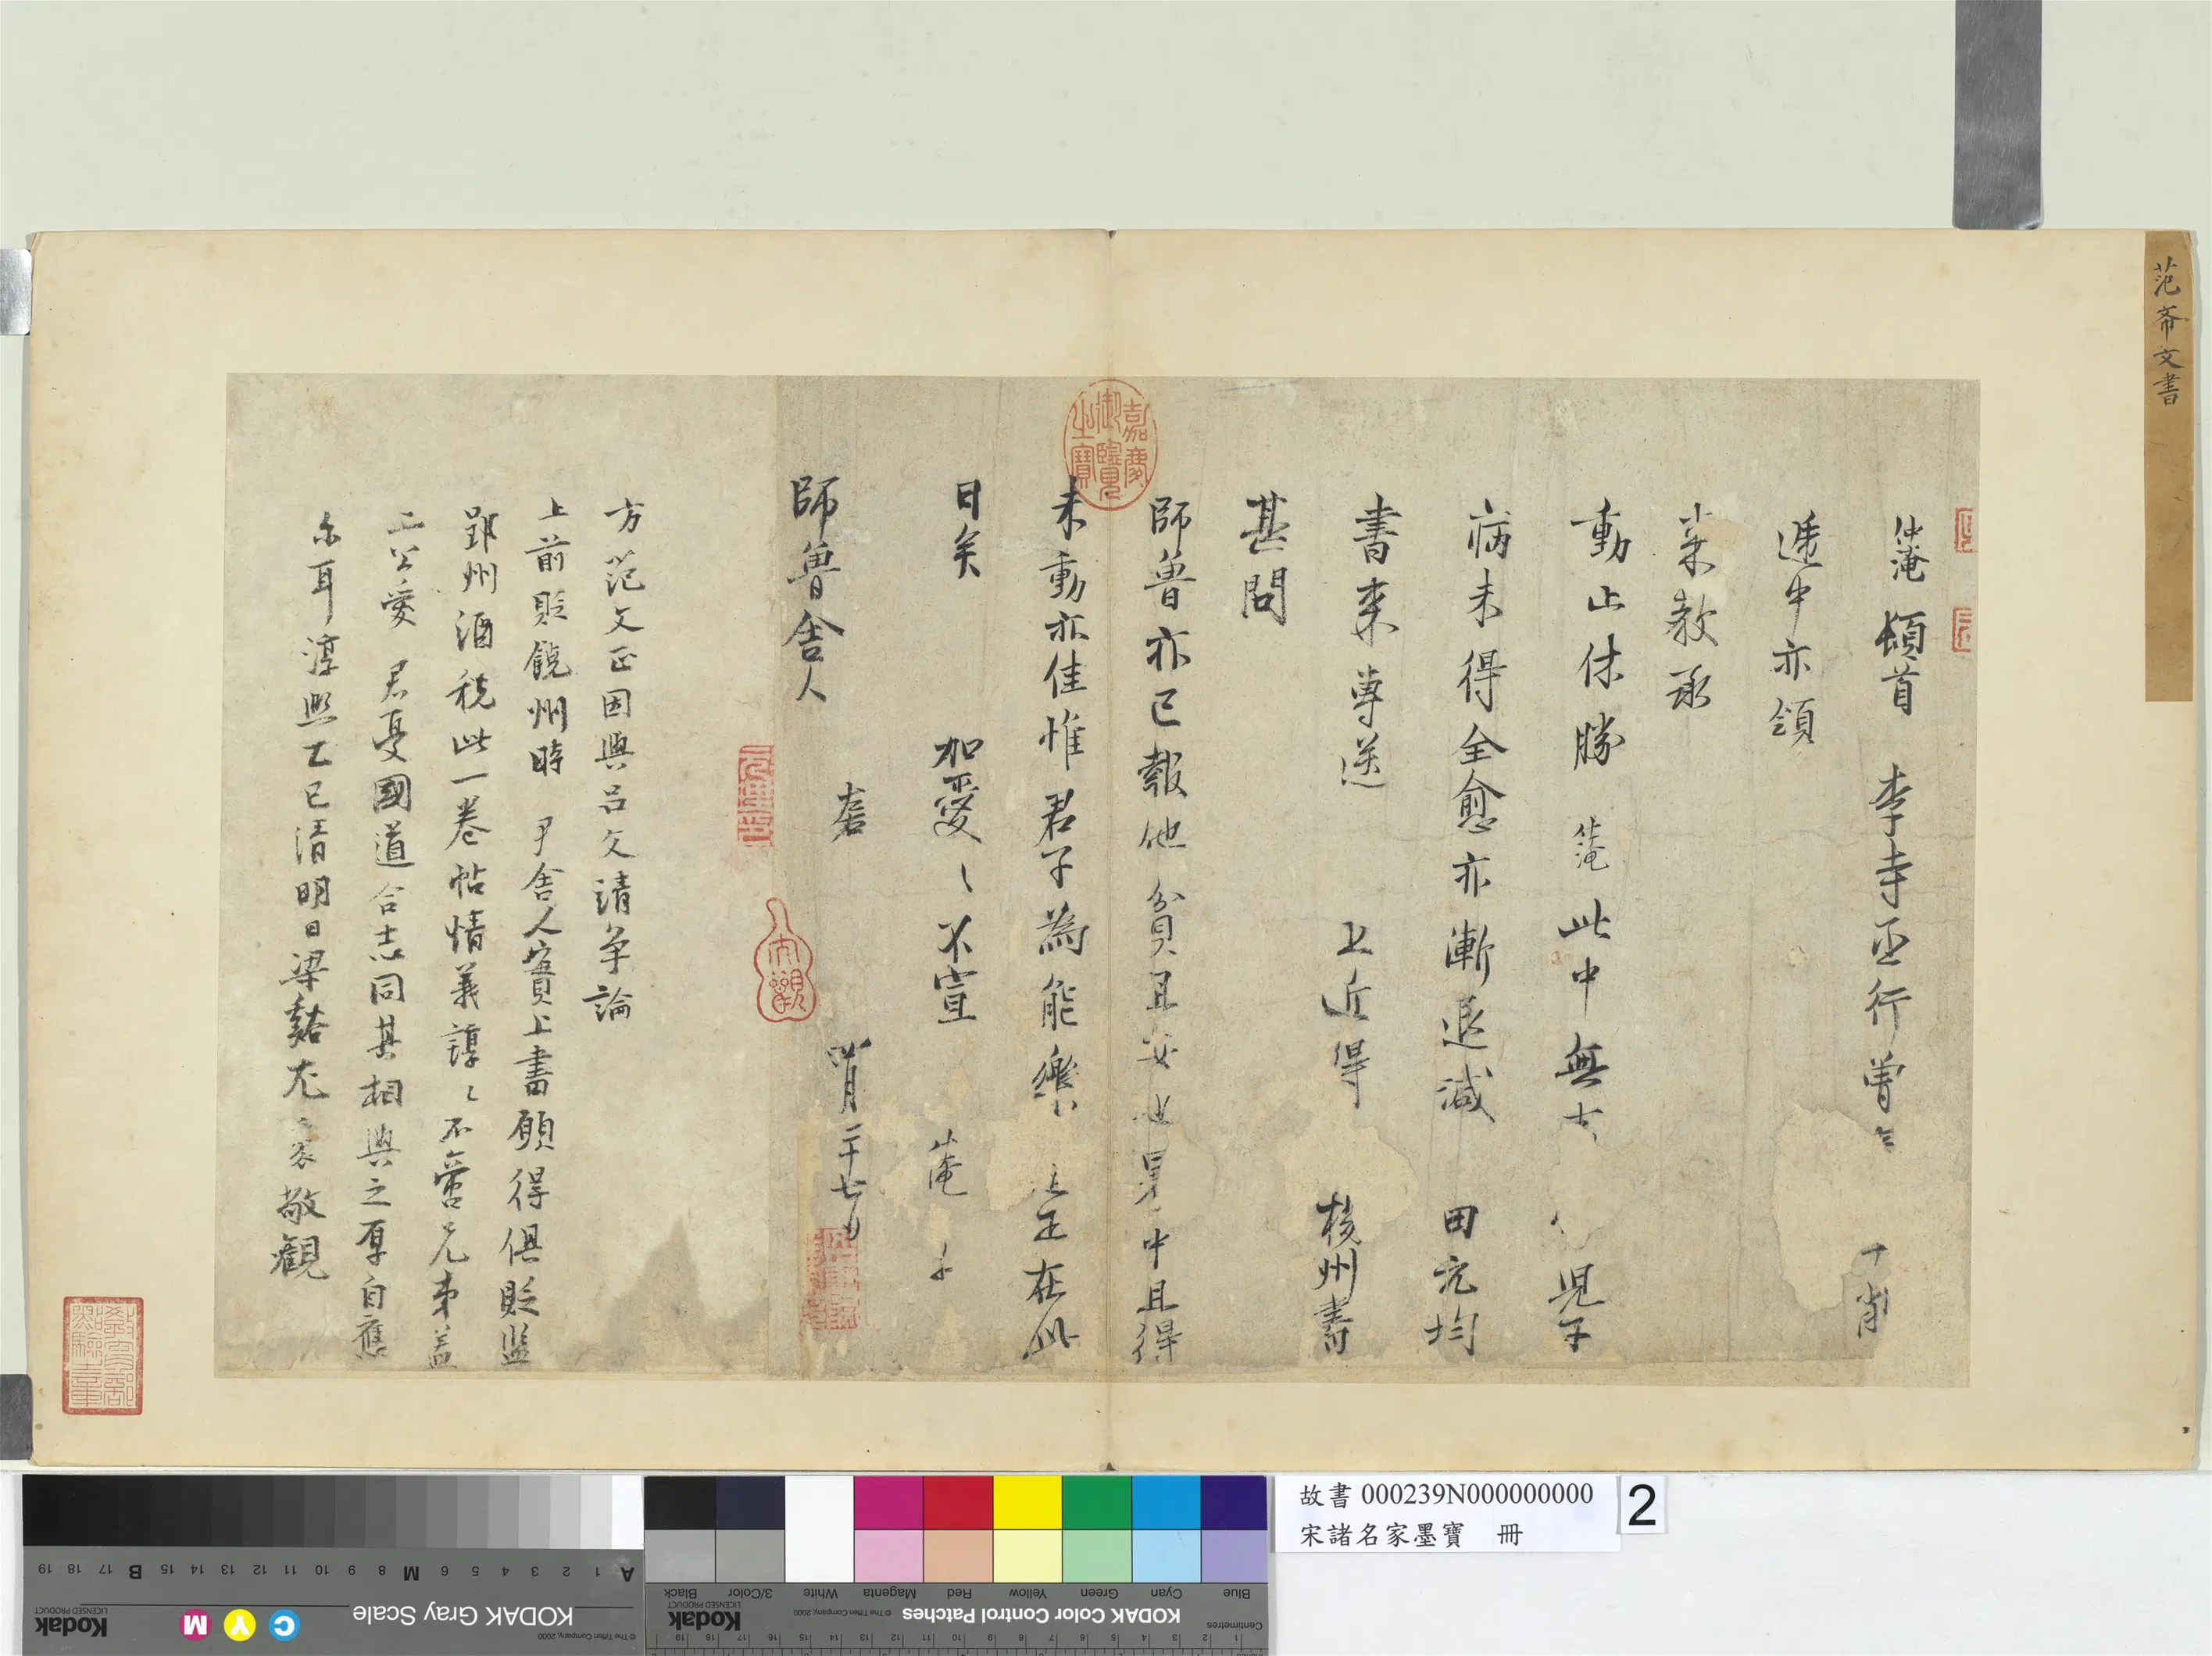 范希文書
仲淹頓首 李寺丞行曾 十一月
遞中亦領
来教承
動止休勝 仲淹此中無 兒子
病未得全愈亦漸退減 田元均
書来專送 上近得 揚州書
甚問
師魯亦已報他貧且安也 中且得
未動亦佳惟君子為能樂 正在此
日矣 加愛〻不宣 淹
師魯舍人 四月二十七日
方范文正因與呂文靖争論
上前貶饒州時 尹舍人實上書願得俱貶監
郢州酒稅此一卷帖情義諄〻不啻兄弟蓋
二公愛 君憂國道合志同其相與之厚自應
尓耳淳熙乙巳清明日梁谿尤袤敬觀
嘉慶御覽之寶
教育部點驗之章
故書 000239N000000000
宋諸名家墨寶 冊
2
KODAK Gray Scale
Kodak
LICENSED PRODUCT
© The Tiffen Company, 2000
C Y M
A 1 2 3 4 5 6 M 8 9 10 11 12 13 14 15 B 17 18 19
KODAK Color Control Patches
Kodak
LICENSED PRODUCT
© The Tiffen Company, 2000
Blue Cyan Green Yellow Red Magenta White 3/Color Black
Centimetres